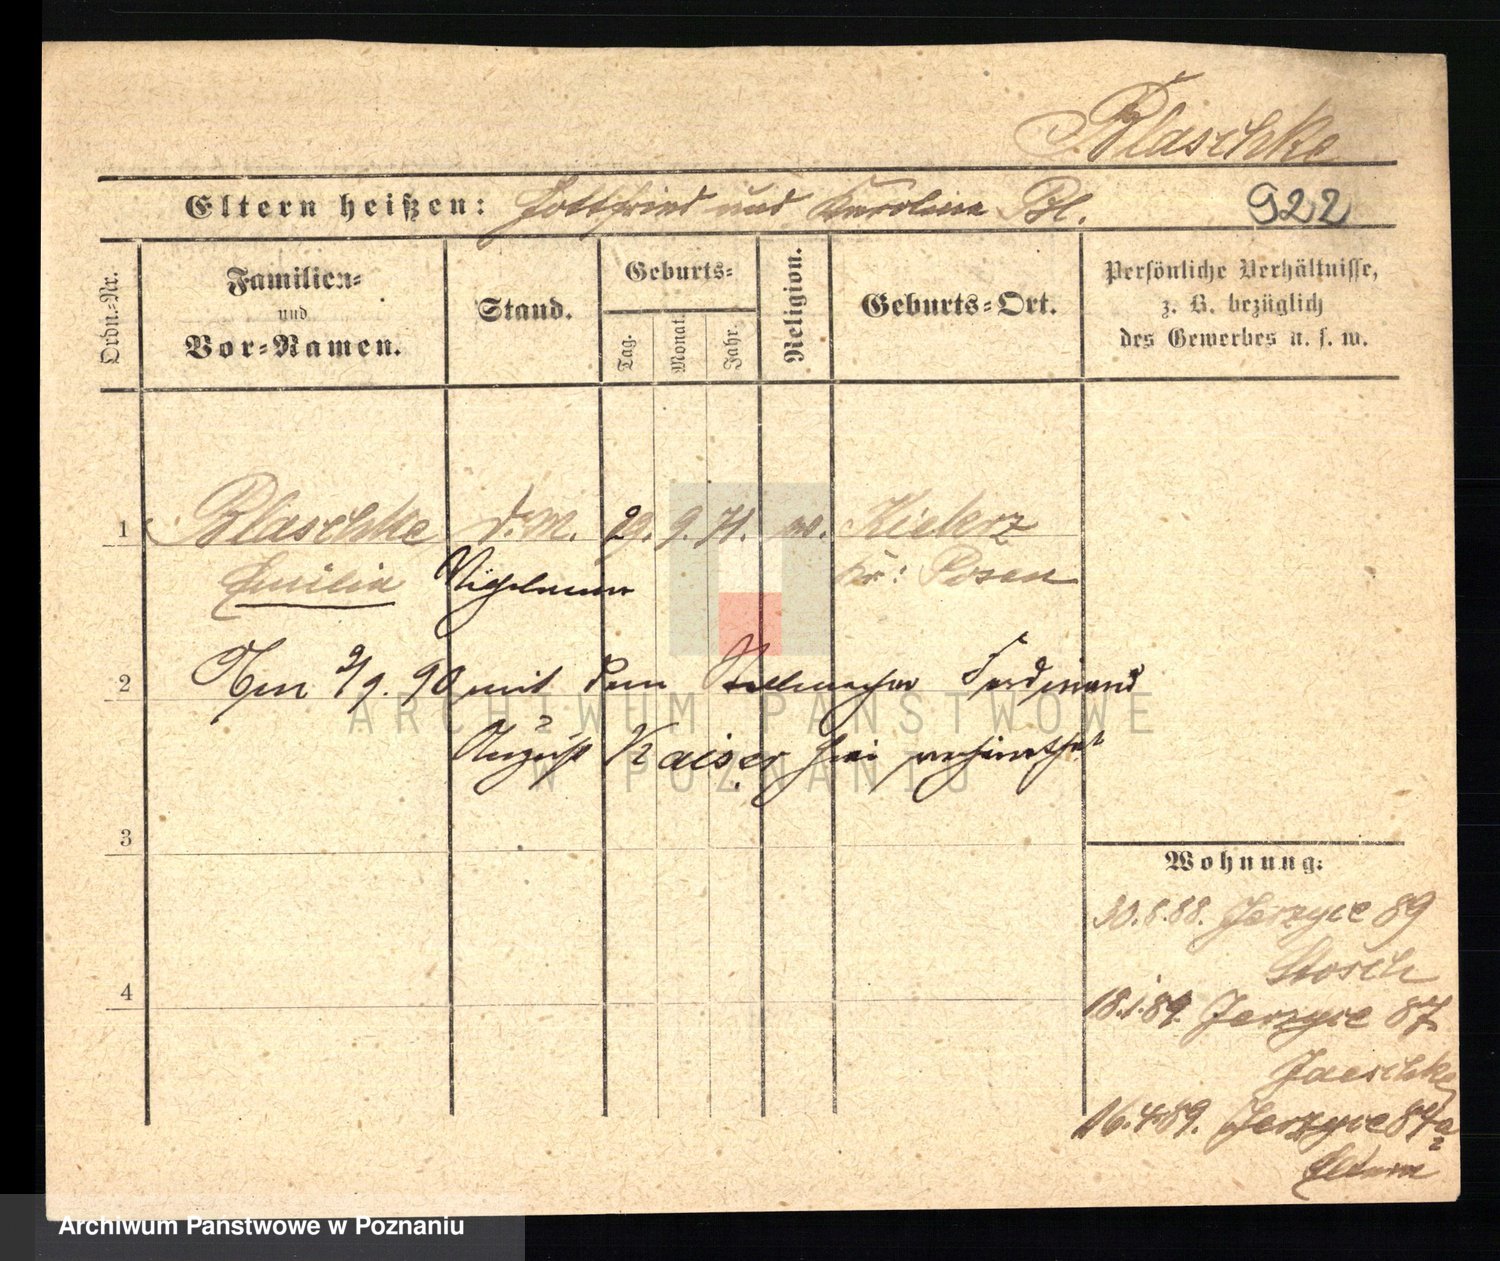 Blaschke
Eltern heißen: Gottfried und Karolina Bl. 922
Ordn.-Nr.
Familien-
und
Vor-Namen.
Stand.
Geburts-
Tag.
Monat.
Jahr.
Religion.
Geburts-Ort.
Persönliche Verhältnisse,
z. B. bezüglich
des Gewerbes u. s. w.
1 Blaschke d. M. 29. 9. 71. Kiekrz
Emilia Kr: Posen
2 Am 2/9. 90 mit dem Stellmacher Ferdinand
August Kaiser hier verheirathet
3
4
Wohnung:
30.8.88. Jerzyce 89
Stosch
18.1.89. Jerzyce 87
Jaeschke
16.4.89. Jerzyce 87a
Eltern
ARCHIWUM PAŃSTWOWE
W POZNANIU
Archiwum Państwowe w Poznaniu